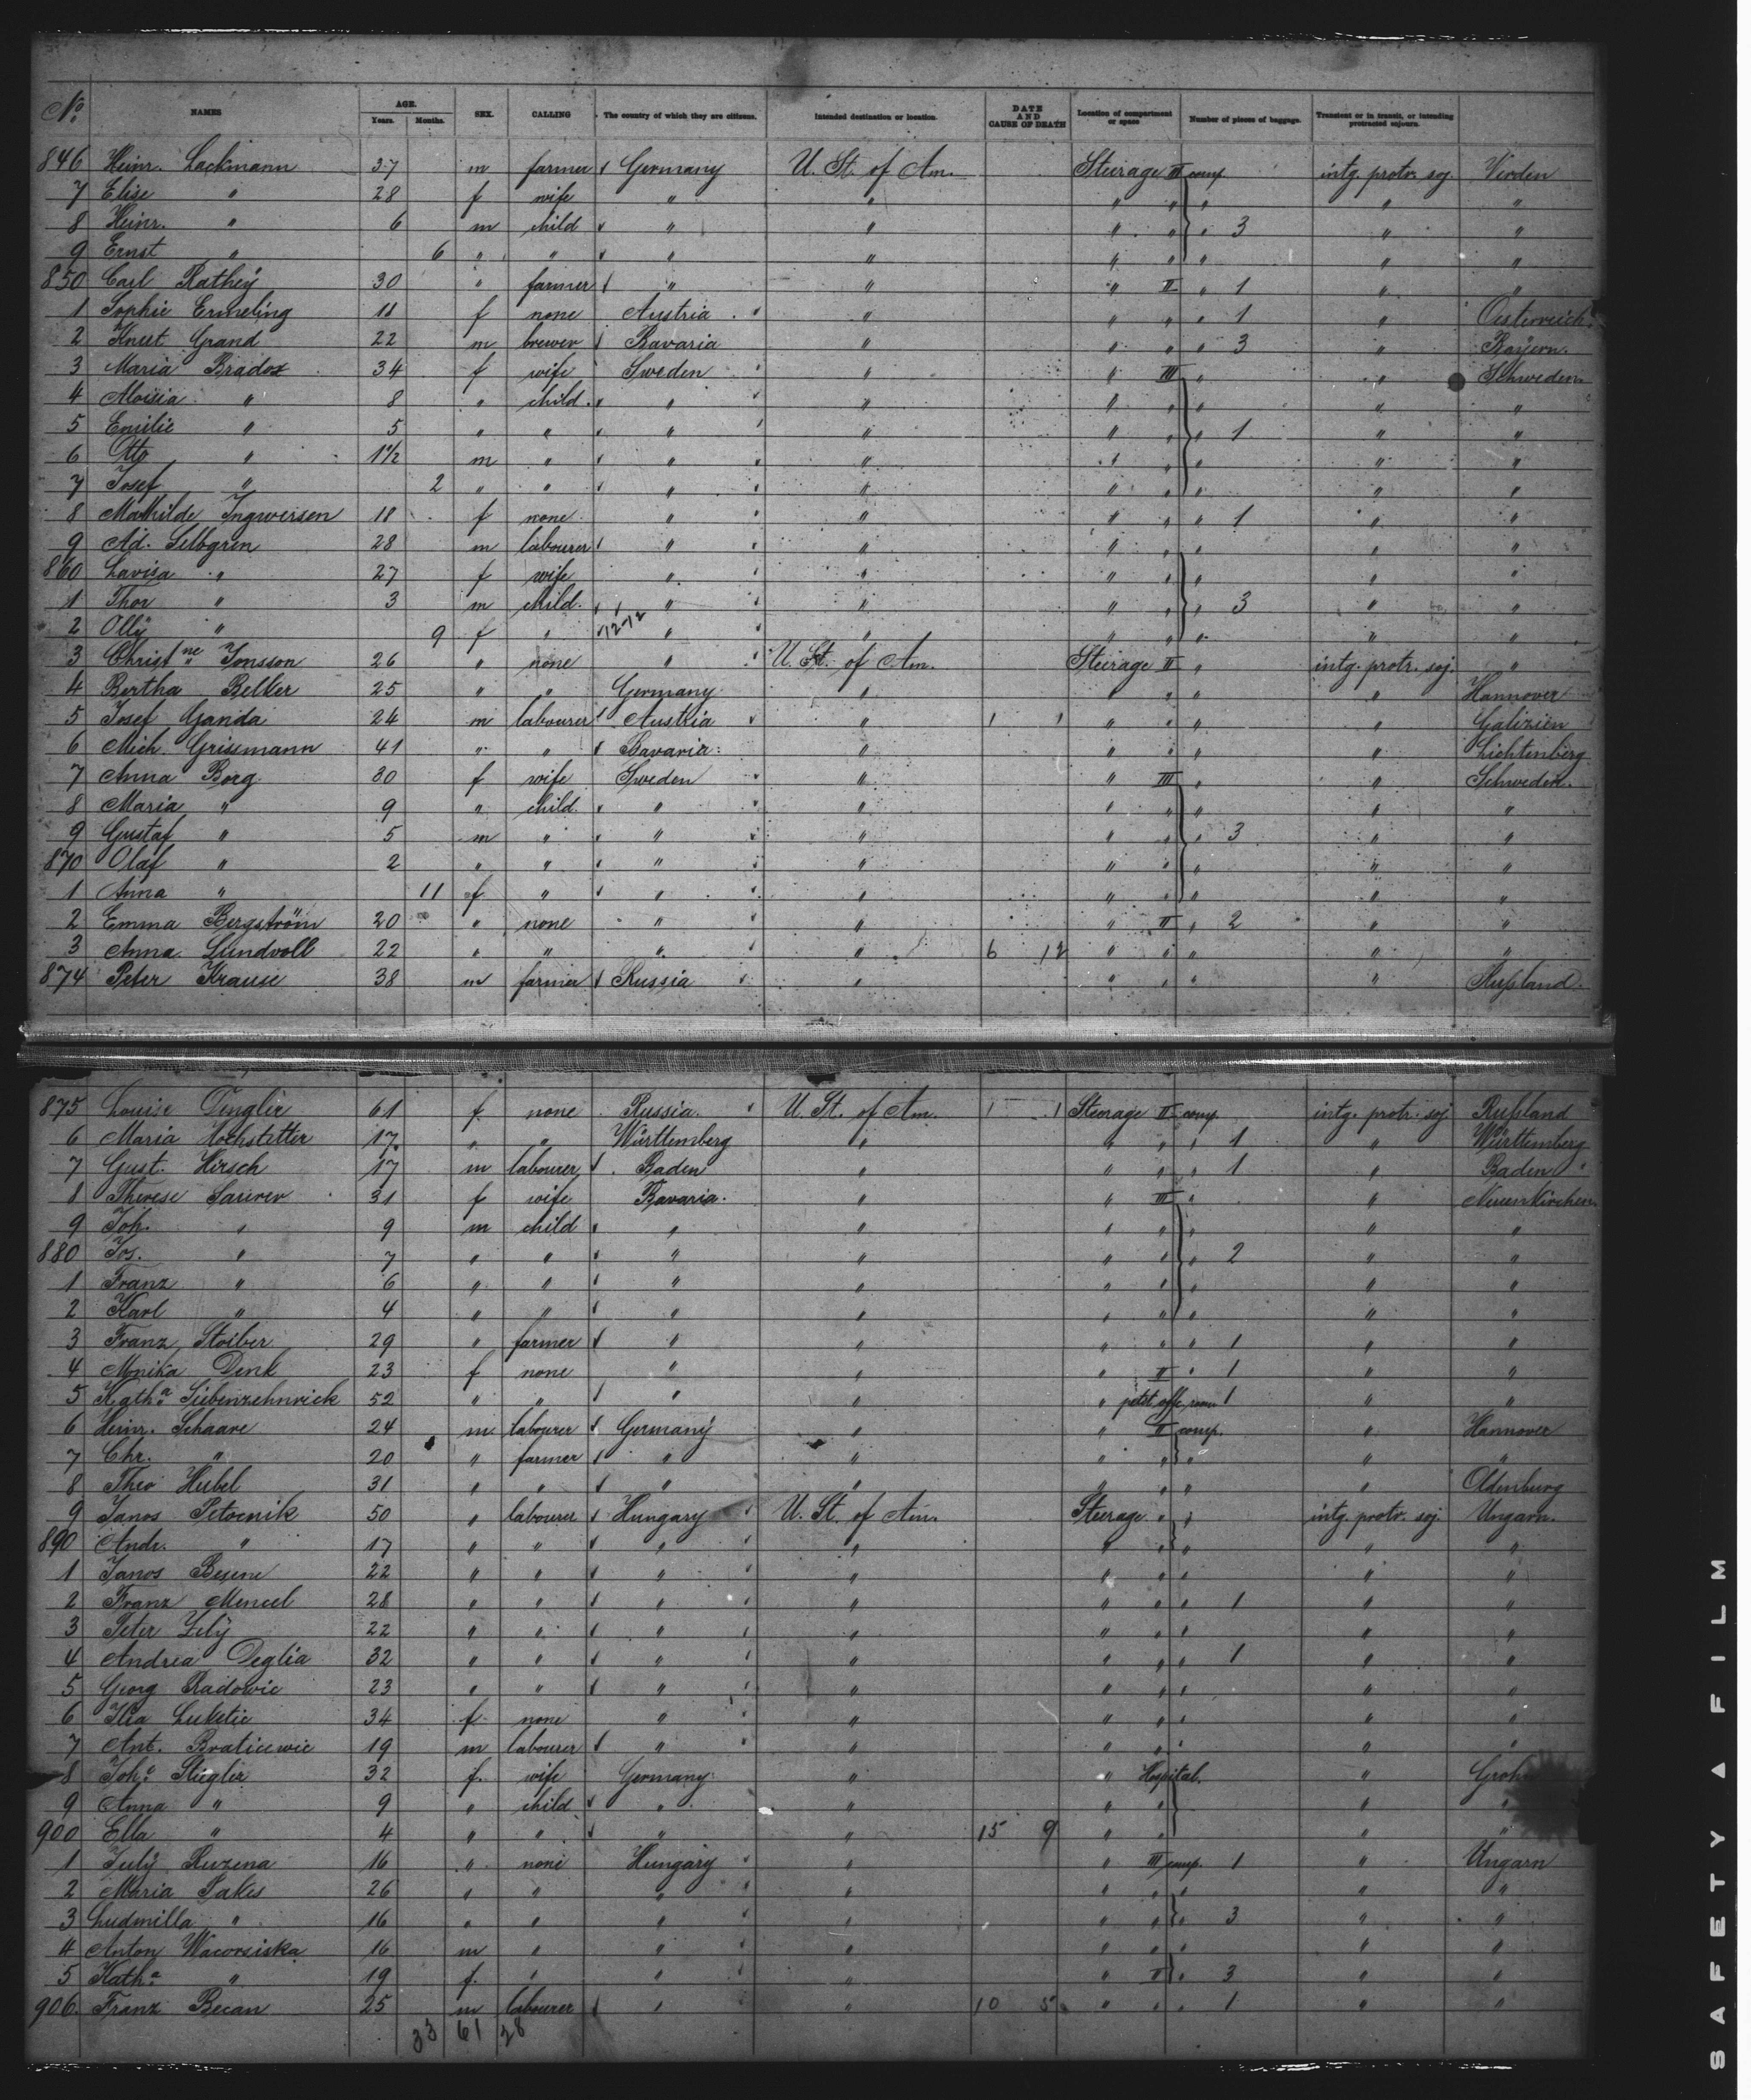 No. NAMES AGE. Years. Months. SEX. CALLING The country of which they are citizens. Intended destination or location. DATE AND CAUSE OF DEATH Location of compartment or space Number of pieces of baggage. Transient or in transit, or intending protracted sojourn.
846 Heinr. Lackmann 37 m farmer Germany U. St. of Am. Steerage II comp. intg. protr. soj. Verden
7 Elise " 28 f wife " " " " " " "
8 Heinr. " 6 m child " " " " " 3 " "
9 Ernst " 6 " " " " " " " " "
850 Carl Rathey 30 " farmer " " " II " 1 " "
1 Sophie Ermeling 11 f none Austria " " " " 1 " Oesterreich
2 Knut Grand 22 m brewer Bavaria " " " " 3 " Bayern.
3 Maria Brados 34 f wife Sweden " " III " " Schweden.
4 Aloisia " 8 " child " " " " " " "
5 Emilie " 5 " " " " " " " 1 " "
6 Otto " 1½ m " " " " " " " "
7 Josef " 2 " " " " " " " " "
8 Mathilde Ingwersen 18 f none " " " " " 1 " "
9 Ad. Selbgren 28 m labourer " " " " " " "
860 Lavisa " 27 f wife " " " " " " "
1 Thor " 3 m child " " " " " 3 " "
2 Olly " 9 f " 12-12 " " " " " " "
3 Christne Jonsson 26 " none " U. St. of Am. Steerage II " intg. protr. soj. "
4 Bertha Belker 25 " " Germany " " " " " Hannover
5 Josef Ganda 24 m labourer Austria " 1 1 " " " " Galizien
6 Mich. Grissmann 41 " " Bavaria " " " " " Lichtenberg
7 Anna Borg 30 f wife Sweden " " III " " Schweden.
8 Maria " 9 " child " " " " " " "
9 Gustaf " 5 m " " " " " " 3 " "
870 Olaf " 2 " " " " " " " " "
1 Anna " 11 f " " " " " " " "
2 Emma Bergström 20 " none " " " II " 2 " "
3 Anna Lundvoll 22 " " " " 6 12 " " " " "
874 Peter Krause 38 m farmer Russia " " " " " Rußland.
875 Louise Dinglir 61 f none Russia. U. St. of Am. 1 1 Steerage II comp. intg. protr. soj. Rußland
6 Maria Hochstetter 17 " " Württemberg " " " " 1 " Württemberg
7 Gust. Hirsch 17 m labourer Baden " " " " 1 " Baden
8 Therese Saurer 31 f wife Bavaria. " " III " " Neuenkirchen
9 Joh. " 9 m child " " " " " " "
880 Jos. " 7 " " " " " " " 2 " "
1 Franz " 6 " " " " " " " " "
2 Karl " 4 " " " " " " " " "
3 Franz Stoiber 29 " farmer " " " " " 1 " "
4 Monika Denk 23 f none " " " II " 1 " "
5 Katha. Siebenzehnrick 52 " " " " " petit offc. room 1 " "
6 Heinr. Schaare 24 m labourer Germany " " II comp. " Hannover
7 Chr. " 20 " farmer " " " " " " "
8 Theo Hubel 31 " " " " " " " " Oldenburg
9 Janos Petocnik 50 " labourer Hungary U. St. of Am. Steerage " " intg. protr. soj. Ungarn.
890 Andr. " 17 " " " " " " " " "
1 Janos Besene 22 " " " " " " " " "
2 Franz Mencel 28 " " " " " " " 1 " "
3 Peter Zily 22 " " " " " " " " "
4 Andrea Deglia 32 " " " " " " " 1 " "
5 Georg Radowic 23 " " " " " " " " "
6 Ilia Luketic 34 f. none " " " " " " "
7 Ant. Braticewic 19 m labourer " " " " " " "
8 Joha. Stiegler 32 f. wife Germany " " Hospital. "
9 Anna " 9 " child " " " " " "
900 Ella " 4 " " " " 15 9 " " " "
1 July Ruzena 16 " none Hungary " " III comp. 1 " Ungarn
2 Maria Sakes 26 " " " " " " " " "
3 Ludmilla " 16 " " " " " " " 3 " "
4 Anton Wacorsiska 16 m " " " " " " " "
5 Katha. " 19 f. " " " " II " 3 " "
906. Franz Becan 25 m labourer " " 10 5 " " " 1 " "
33 61 28
SAFETY ▲ FILM